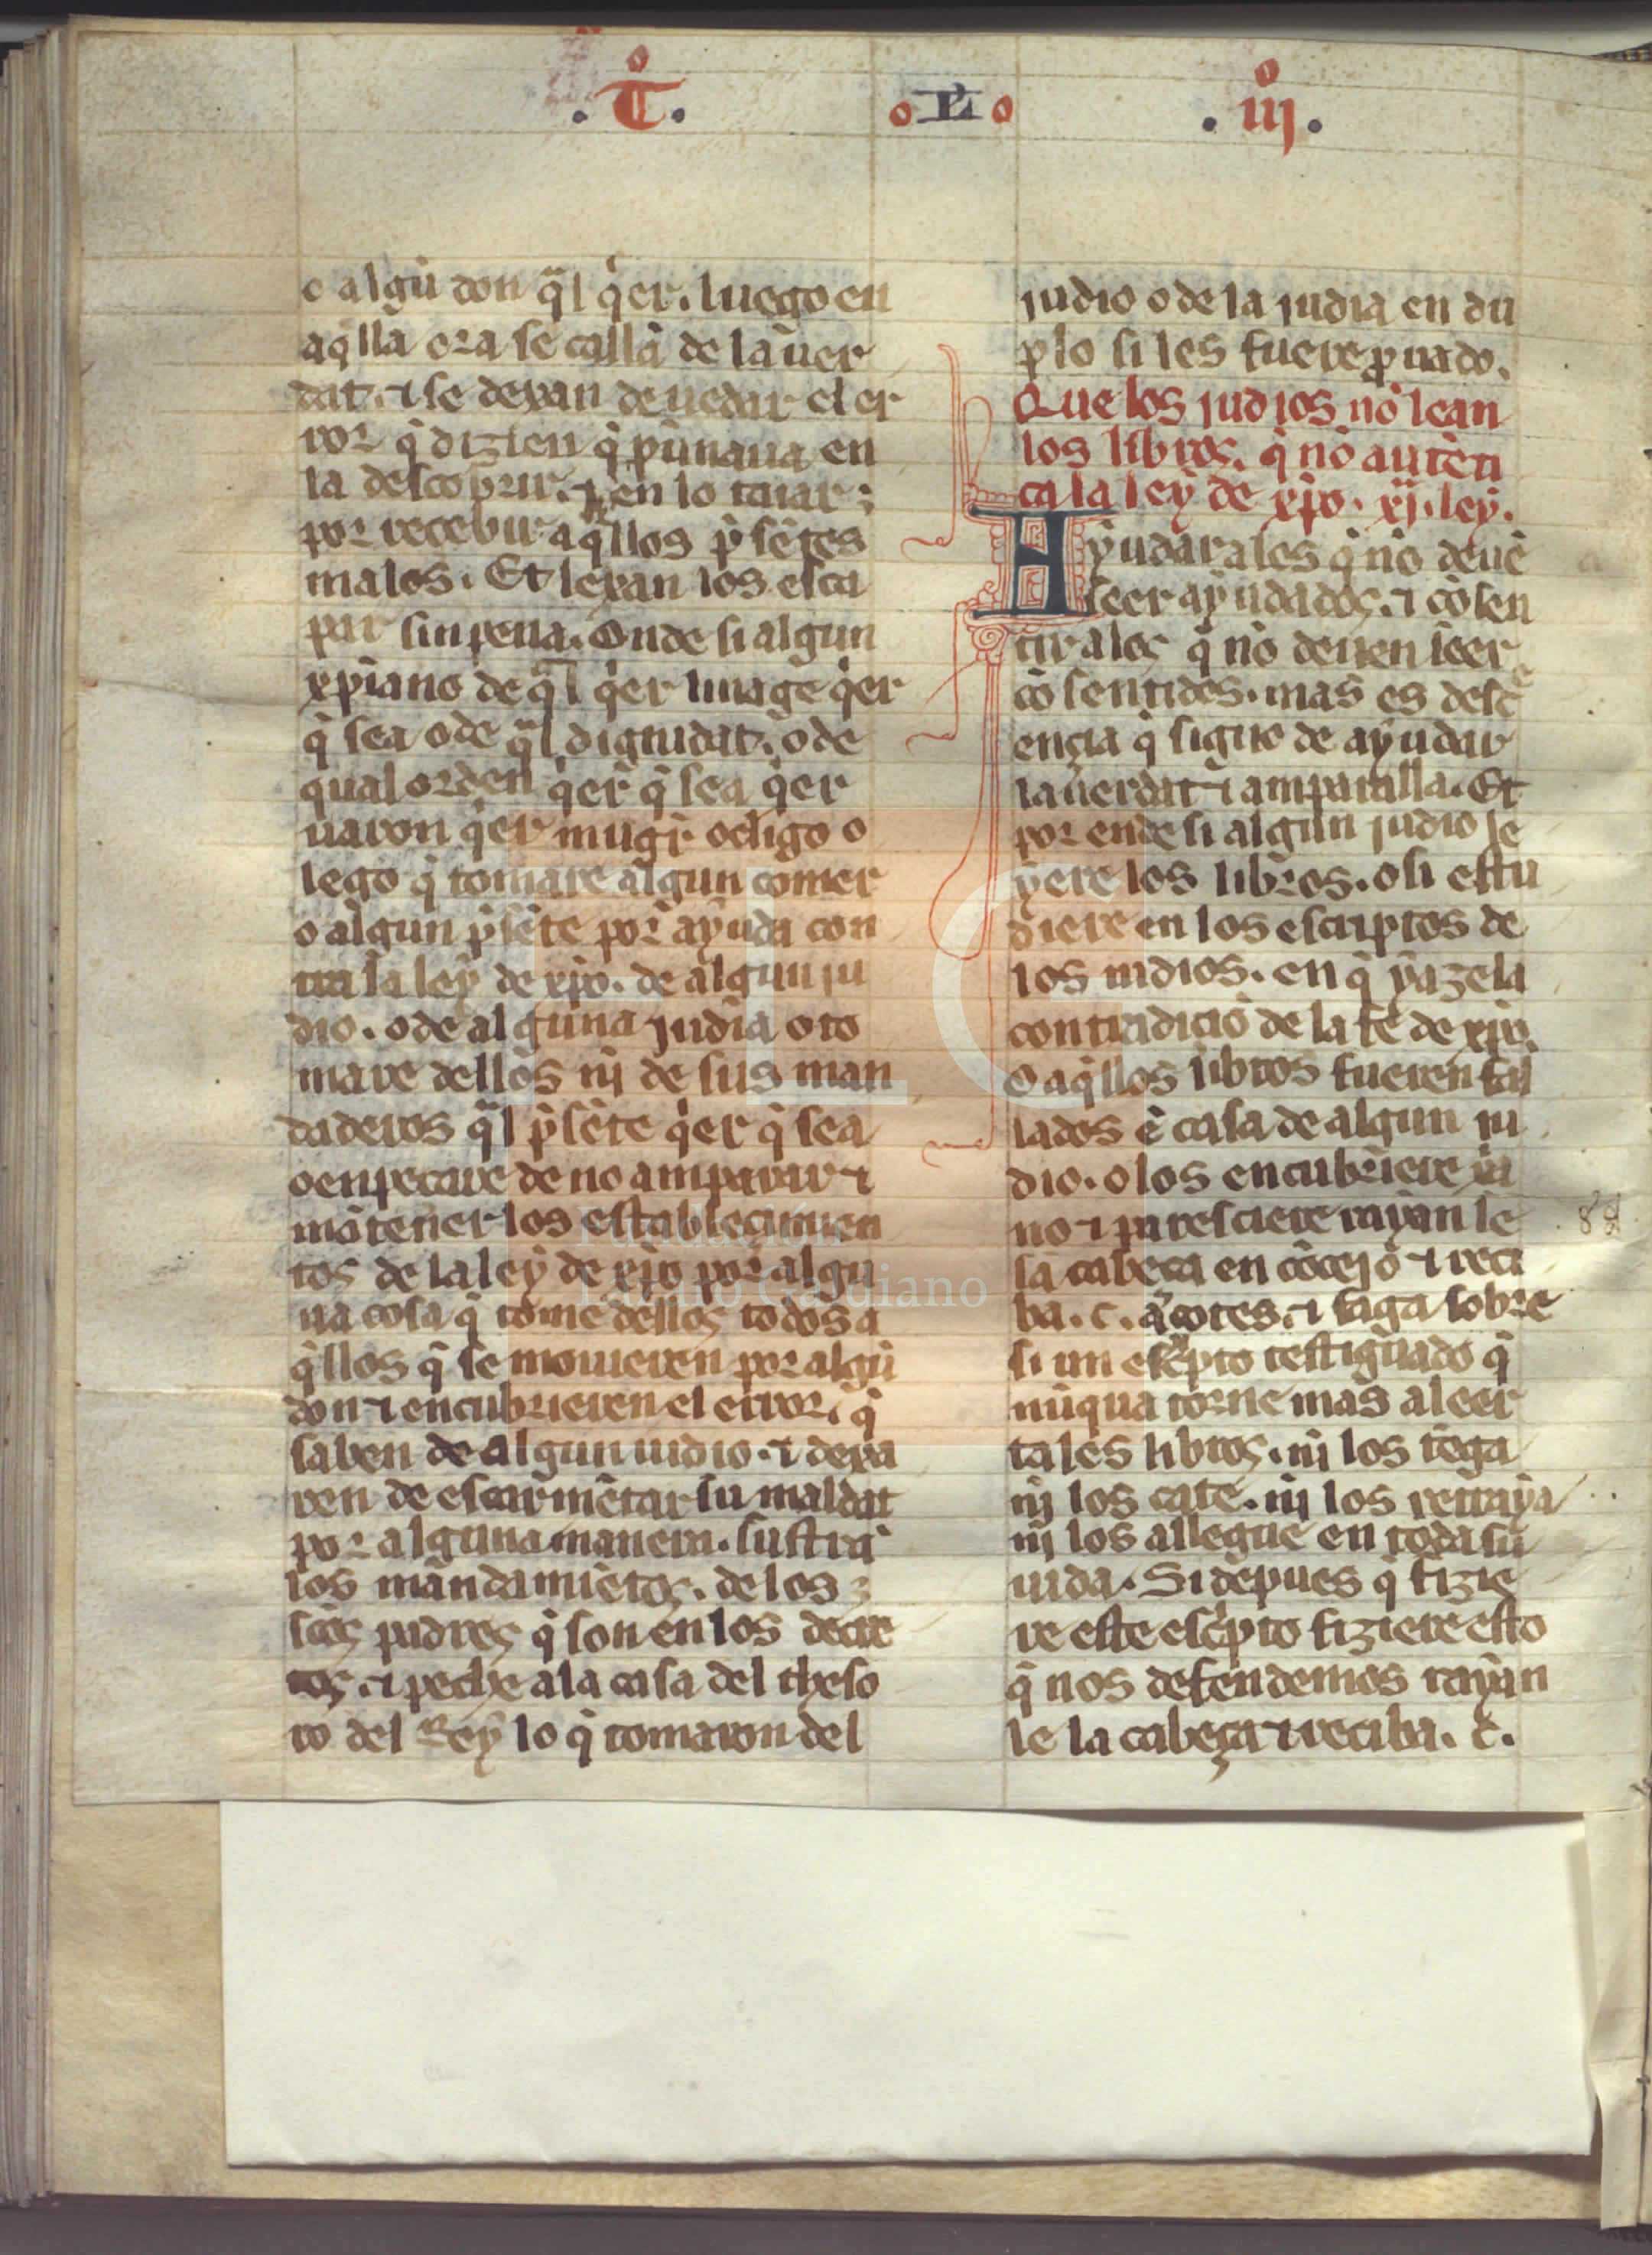 .T͛. L .iij͛.
o algũ don q̃l q̃er. luego en
aq̃lla ora se callã de la uer
dat. ⁊ se dexan de uedar el er
ror q̃ dizien q̃ punaua en
la descobrir. ⁊ en lo taiar;
por recebir aq̃llos p̃sẽtes
malos. Et lexan los esca
par sin pena. Onde si algun
xp̃iano de q̃l q̃er linage q̃er
q̃ sea o de q̃l dignidat. o de
qual orden q̃er q̃ sea q̃er
uaron q̃er mug̃r o cl̃igo o
lego q̃ tomare algun comer
o algun p̃sẽte por ayuda con
tra la ley de xp̃o. de algun iu
dio. o de alguna judia o to
mare dellos nj de sus man
daderos q̃l p̃sẽte q̃er q̃ sea
o enpeçare de no amparar ⁊
mãtener los establecimien
tos de la ley de xp̃o por algu
na cosa q̃ tome dellos todos a
q̃llos q̃ se mouieren por algũ
don ⁊ encubrieren el error. q̃
saben de algun iudio. ⁊ dexa
ren de escarmẽtar su maldat
por alguna manera. sustrã
los mandamiẽtos. de los
sc̃os padres q̃ son en los decre
tos. ⁊ peche a la casa del theso
ro del Rey lo q̃ tomaron del
judio o de la judia en du
plo si les fuere p̃uado.
Que los judios nõ lean
los libros. q̃ nõ auten
ca la ley de xp̃o. xj. ley.
Ayudar a los q̃ nõ deuẽ
seer ayudados. ⁊ cõsen
tir a los q̃ nõ deuen seer
cõsentidos. mas es desc̃
ençia q̃ signo de ayudar
la uerdat ⁊ amparalla. Et
por ende si algun judio le
yere los libros. o si estu
diere en los escriptos de
los iudios. en q̃ yaze la
contradiciõ de la fe de xp̃o.
O aq̃llos libros fueren fal
lados ẽ casa de algun iu
dio. o los encubriere
no ⁊ paresciere rayan le
la cabeça en cõceio ⁊ reci
ba. c. açotes. ⁊ faga sobre
si un esc̃pto testiguado q̃
nũqua torne mas a leer
tales libros. nj los tega
nj los cate. nj los retraya
nj los allegue en toda su
uida. Si depues q̃ fizie
re este esc̃pto fiziere esto
q̃ nos defendemos rayan
le la cabeça ⁊ reciba. c̃.